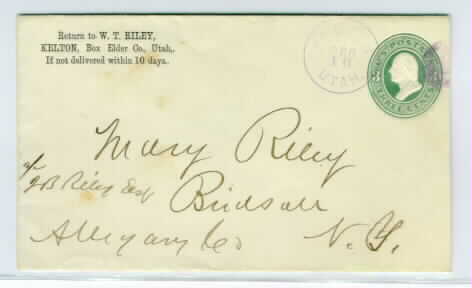 Return to W. T. RILEY,
KELTON, Box Elder Co., Utah,
If not delivered within 10 days.
UTAH
U.S. POSTAGE
THREE CENTS
Mary Riley
c/o J B Riley Esq
Birdsall
Allegany Co
N. Y.